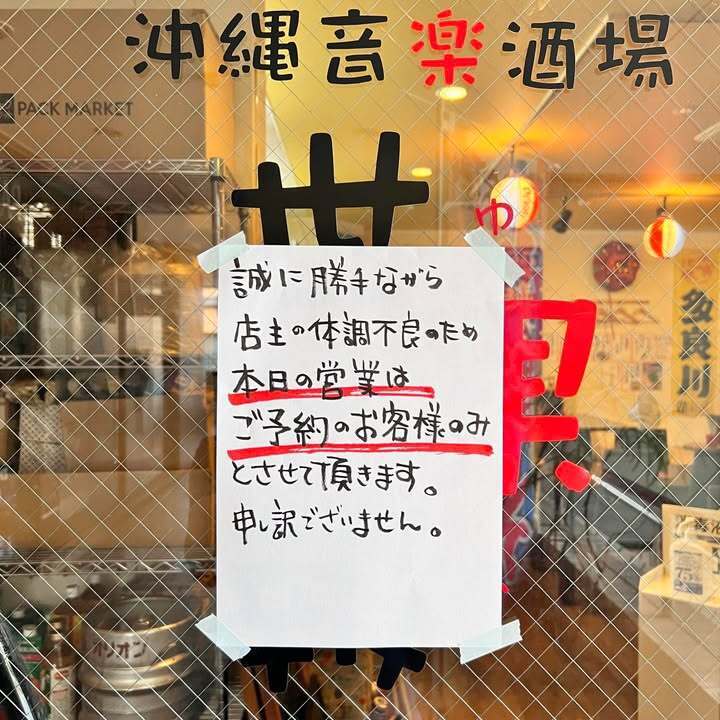 沖縄音楽酒場
PACK MARKET
世
ゆ
誠に勝手ながら
店主の体調不良のため
本日の営業は
ご予約のお客様のみ
とさせて頂きます。
申し訳ございません。
多良川
オリオン